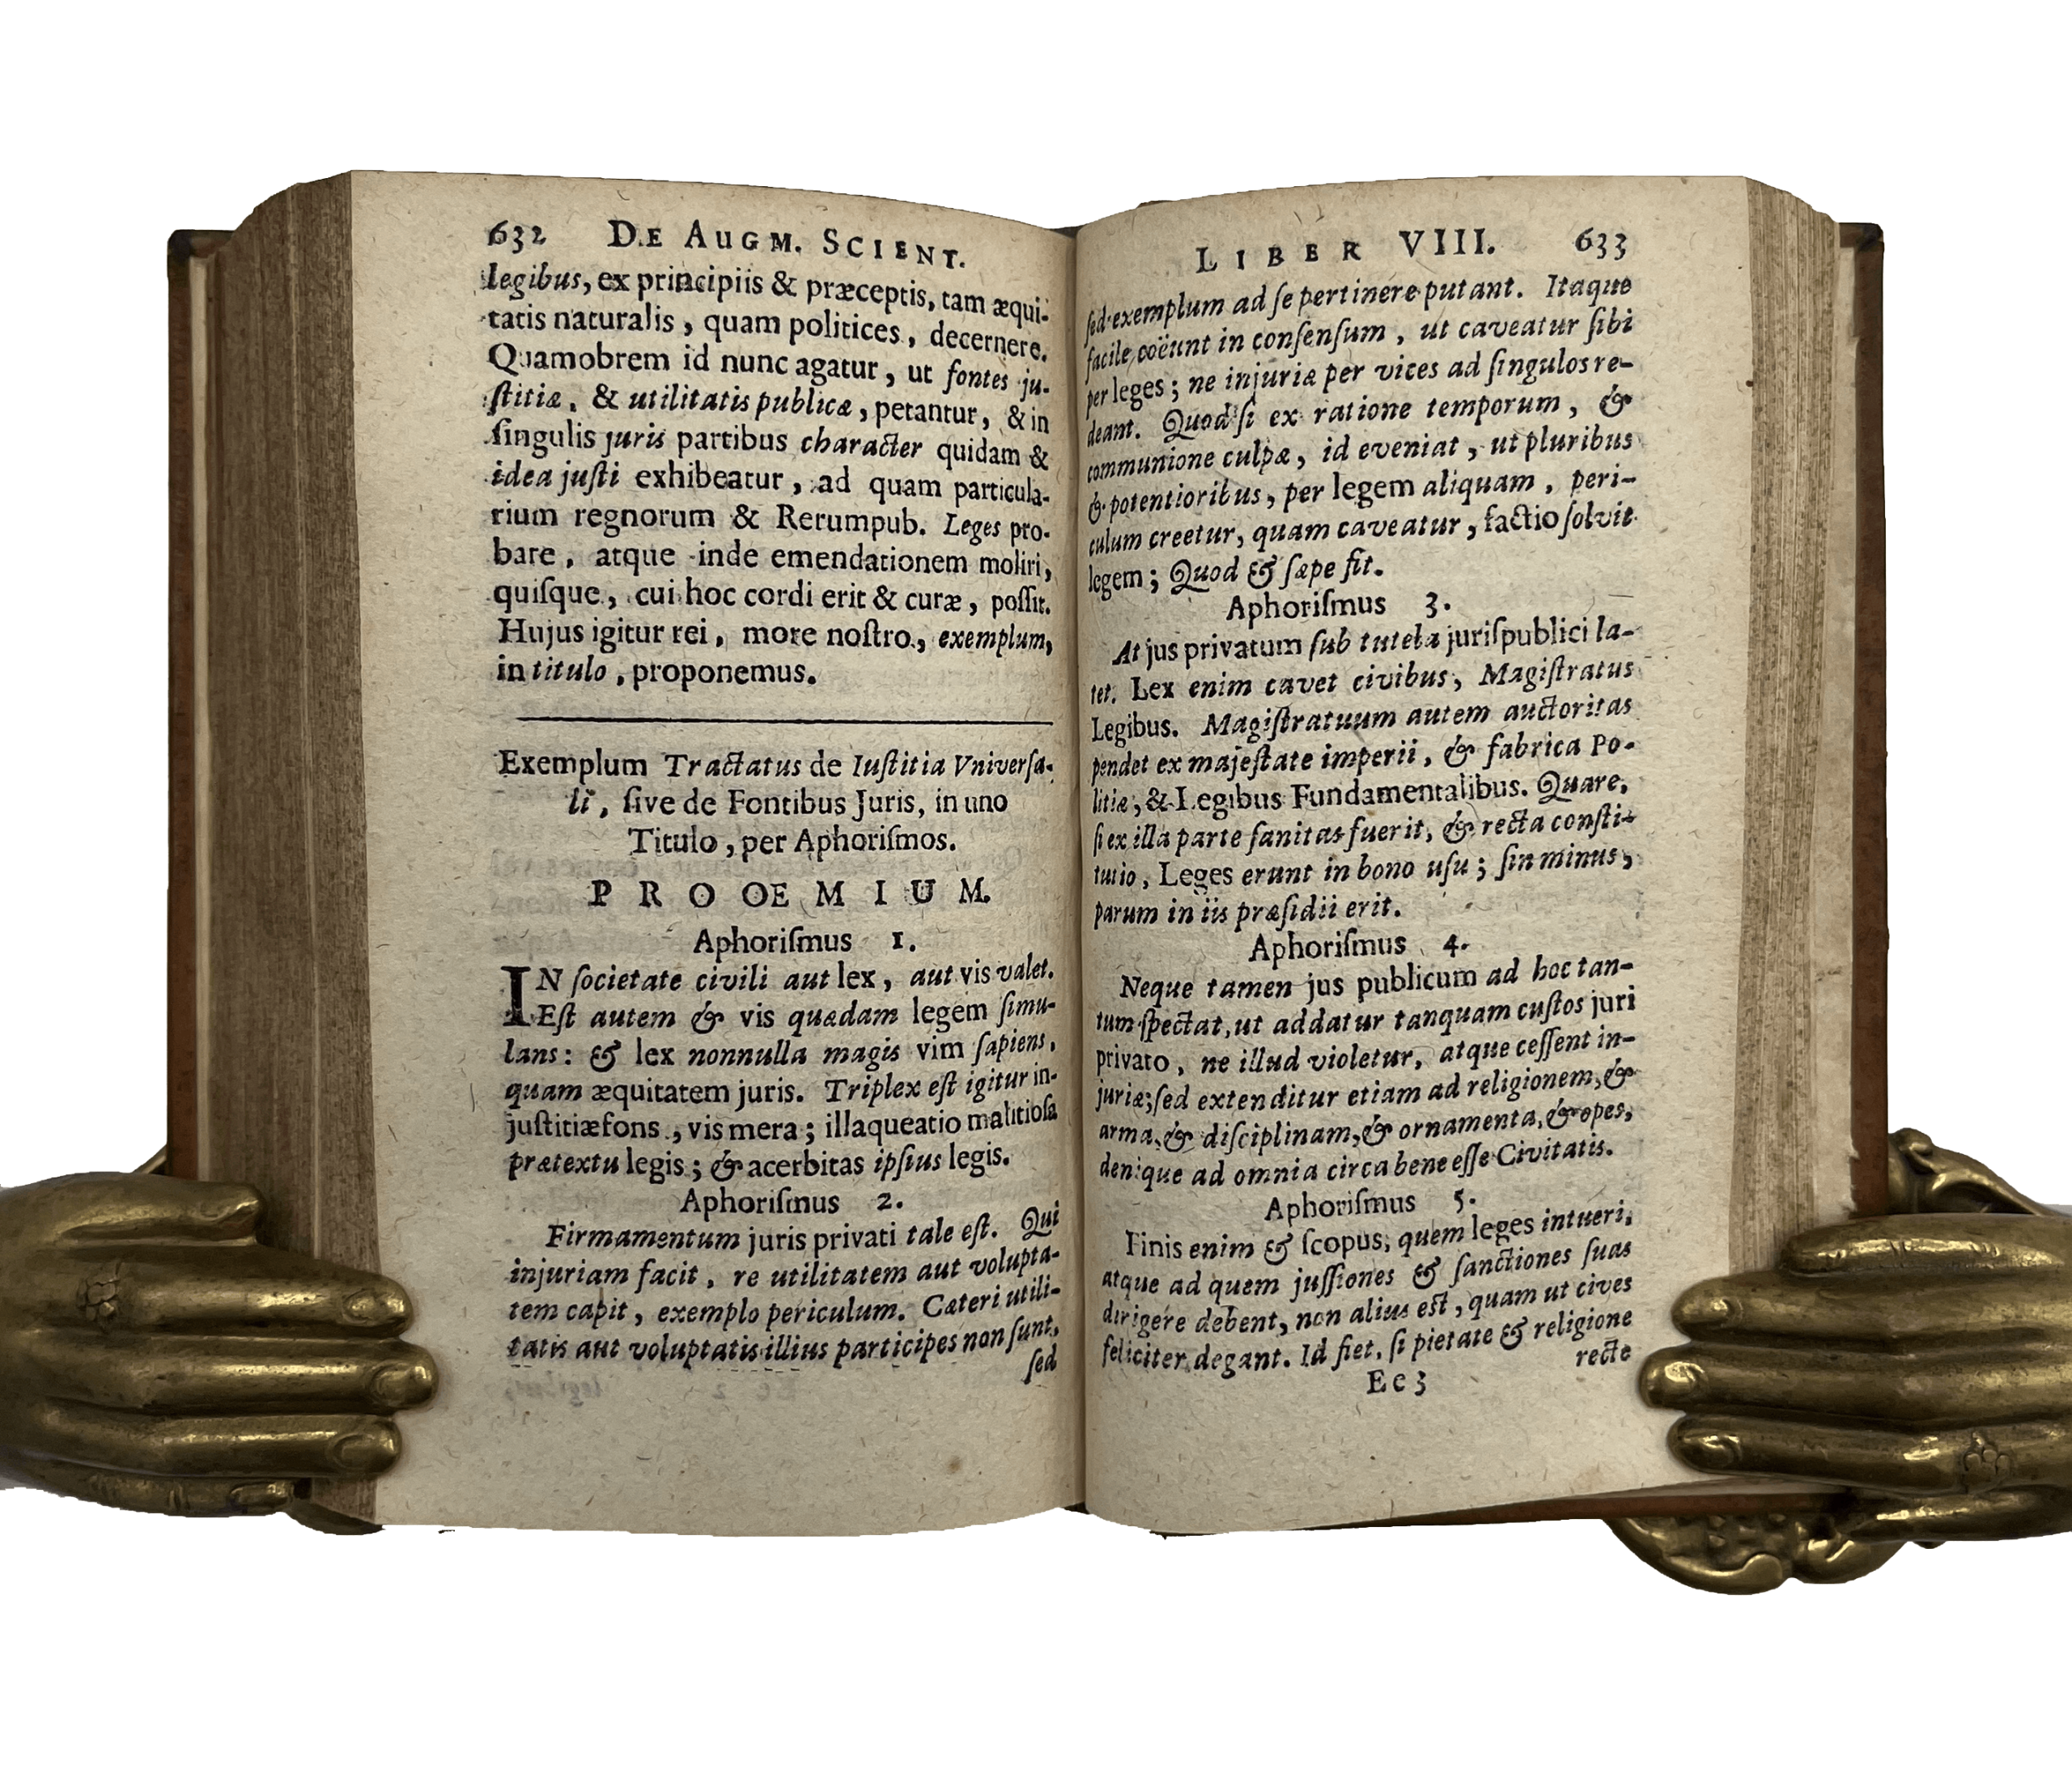 632 DE AUGM. SCIENT.
legibus, ex principiis & præceptis, tam æqui-
tatis naturalis, quam politices, decernere.
Quamobrem id nunc agatur, ut fontes ju-
ſtitiæ, & utilitatis publicæ, petantur, & in
ſingulis juris partibus character quidam &
idea juſti exhibeatur, ad quam particula-
rium regnorum & Rerumpub. Leges pro-
bare, atque inde emendationem moliri,
quiſque, cui hoc cordi erit & curæ, poſſit.
Hujus igitur rei, more noſtro, exemplum,
in titulo, proponemus.
Exemplum Tractatus de Iuſtitia Vniverſa-
li, ſive de Fontibus Juris, in uno
Titulo, per Aphoriſmos.
PROOEMIUM.
Aphoriſmus 1.
IN ſocietate civili aut lex, aut vis valet.
Eſt autem & vis quædam legem ſimu-
lans: & lex nonnulla magis vim ſapiens,
quam æquitatem juris. Triplex eſt igitur in-
juſtitiæ fons, vis mera; illaqueatio malitioſa
prætextu legis; & acerbitas ipſius legis.
Aphoriſmus 2.
Firmamentum juris privati tale eſt. Qui
injuriam facit, re utilitatem aut volupta-
tem capit, exemplo periculum. Cæteri utili-
tatis aut voluptatis illius participes non ſunt,
ſed
LIBER VIII. 633
ſed exemplum ad ſe pertinere putant. Itaque
facile coëunt in conſenſum, ut caveatur ſibi
per leges; ne injuriæ per vices ad ſingulos re-
deant. Quod ſi ex ratione temporum, &
communione culpæ, id eveniat, ut pluribus
& potentioribus, per legem aliquam, peri-
culum creetur, quam caveatur, factio ſolvit
legem; Quod & ſæpe fit.
Aphoriſmus 3.
At jus privatum ſub tutela juriſpublici la-
tet. Lex enim cavet civibus, Magiſtratus
Legibus. Magiſtratuum autem auctoritas
pendet ex majeſtate imperii, & fabrica Po-
litiæ, & Legibus Fundamentalibus. Quare,
ſi ex illa parte ſanitas fuerit, & recta conſti-
tutio, Leges erunt in bono uſu; ſin minus,
parum in iis præſidii erit.
Aphoriſmus 4.
Neque tamen jus publicum ad hoc tan-
tum ſpectat, ut addatur tanquam cuſtos juri
privato, ne illud violetur, atque ceſſent in-
juriæ; ſed extenditur etiam ad religionem, &
arma, & diſciplinam, & ornamenta, & opes,
denique ad omnia circa bene eſſe Civitatis.
Aphoriſmus 5.
Finis enim & ſcopus, quem leges intueri,
atque ad quem juſſiones & ſanctiones ſuas
dirigere debent, non alius est, quam ut cives
feliciter degant. Id fiet, ſi pietate & religione
recte
Ee 3